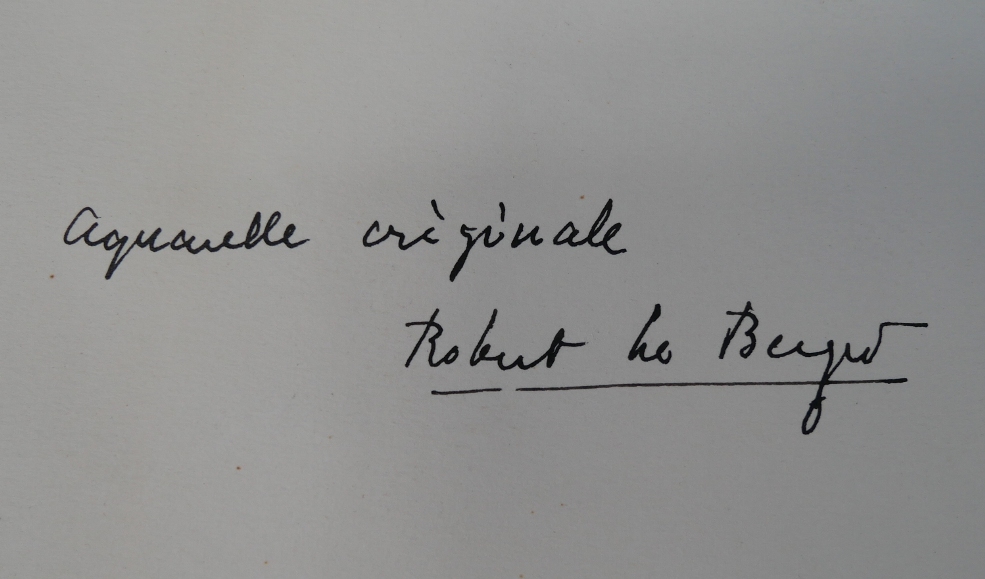 Aquarelle originale
Robert Le Bergot